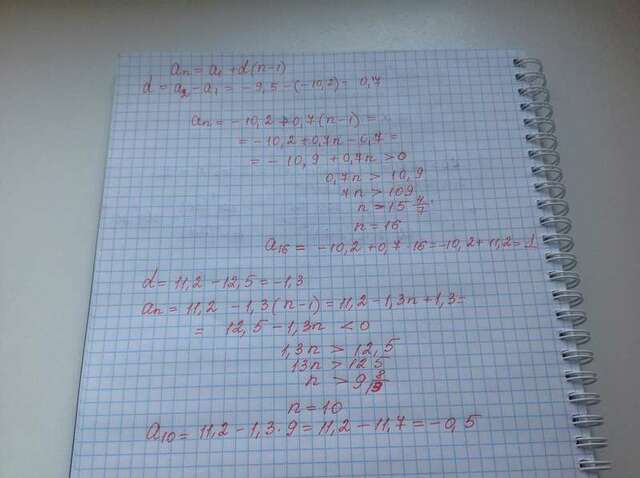 an = a1 + d(n-1)
d = a2 - a1 = -9,5 - (-10,2) = 0,7
an = -10,2 + 0,7(n-1) =
= -10,2 + 0,7n - 0,7 =
= -10,9 + 0,7n > 0
0,7n > 10,9
7n > 109
n > 15 4/7
n = 16
a16 = -10,2 + 0,7 · 16 = -10,2 + 11,2 = 1
d = 11,2 - 12,5 = -1,3
an = 11,2 - 1,3(n-1) = 11,2 - 1,3n + 1,3 =
= 12,5 - 1,3n < 0
1,3n > 12,5
13n > 125
n > 9 8/13
n = 10
a10 = 11,2 - 1,3 · 9 = 11,2 - 11,7 = -0,5